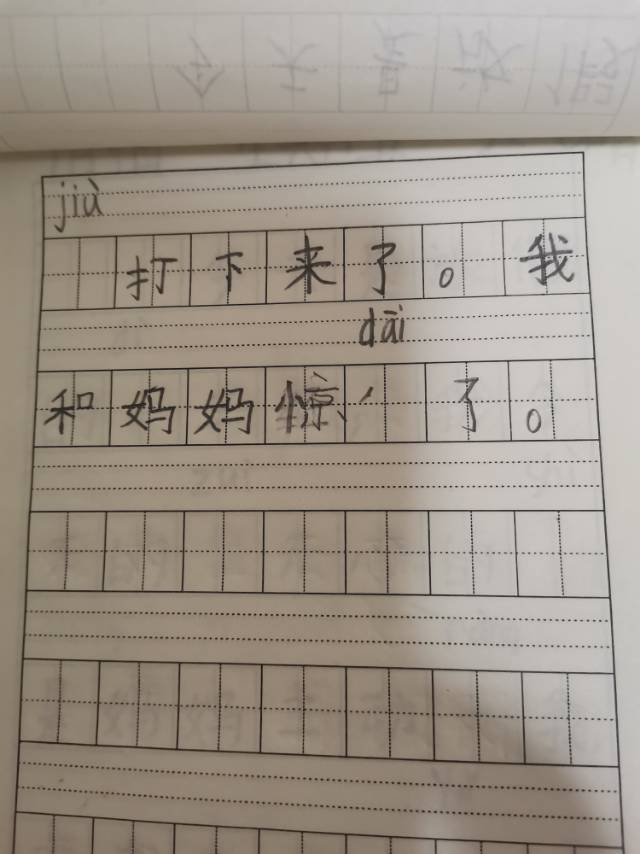 jiù
打下来了。我
dāi
和妈妈惊 了。